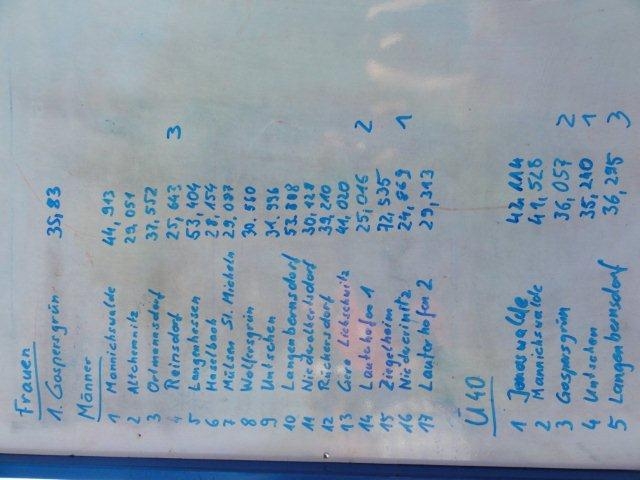 Frauen
1. Gospersgrün 35,83
Männer
1 Mannichswalde 44,913
2 Altchemnitz 29,051
3 Ortmannsdorf 37,552
4 Reinsdorf 25,643 3
5 Langenhessen 53,104
6 Haselbach 28,154
7 Mülsen St. Micheln 29,097
8 Wolfersgrün 30.560
9 Untschen 31.996
10 Langenbernsdorf 53.888
11 Niederalbertsdorf 30,128
12 Rückersdorf 39,210
13 Liebschwitz 41,020
14 Lauterhofen 1 25,016 2
15 Ziegelheim 72,535
16 Niedercrinitz 24,869 1
17 Lauterhofen 2 29,313
Ü40
1 Jonaswalde 42,114
2 Mannichswalde 41,528
3 Gospersgrün 36,057 2
4 Untschen 35,210 1
5 Langenbernsdorf 36,295 3